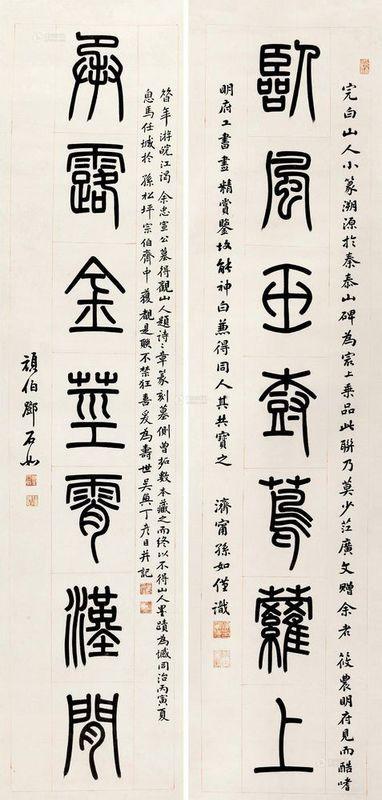 完白山人小篆溯源於秦泰山碑為冣上乘品此聯乃莫少莊廣文贈余者 筱農明府見而酷嗜
臥風玉尌蔦蘿上
明府工書畫精賞鑒故能神白兼得同人其共寶之 濟甯孫如僅識
昝年游皖江謁 余忠宣公墓得觀山人題詩三章篆刻墓側曾拓數本藏之而終以不得山人墨蹟為憾同治丙寅夏
息馬任城於 孫松坪宗伯齋中獲觀是聯不禁狂喜爰為壽世吳興丁彥臣并記
承露金莖霄漢間
頑伯鄧石如